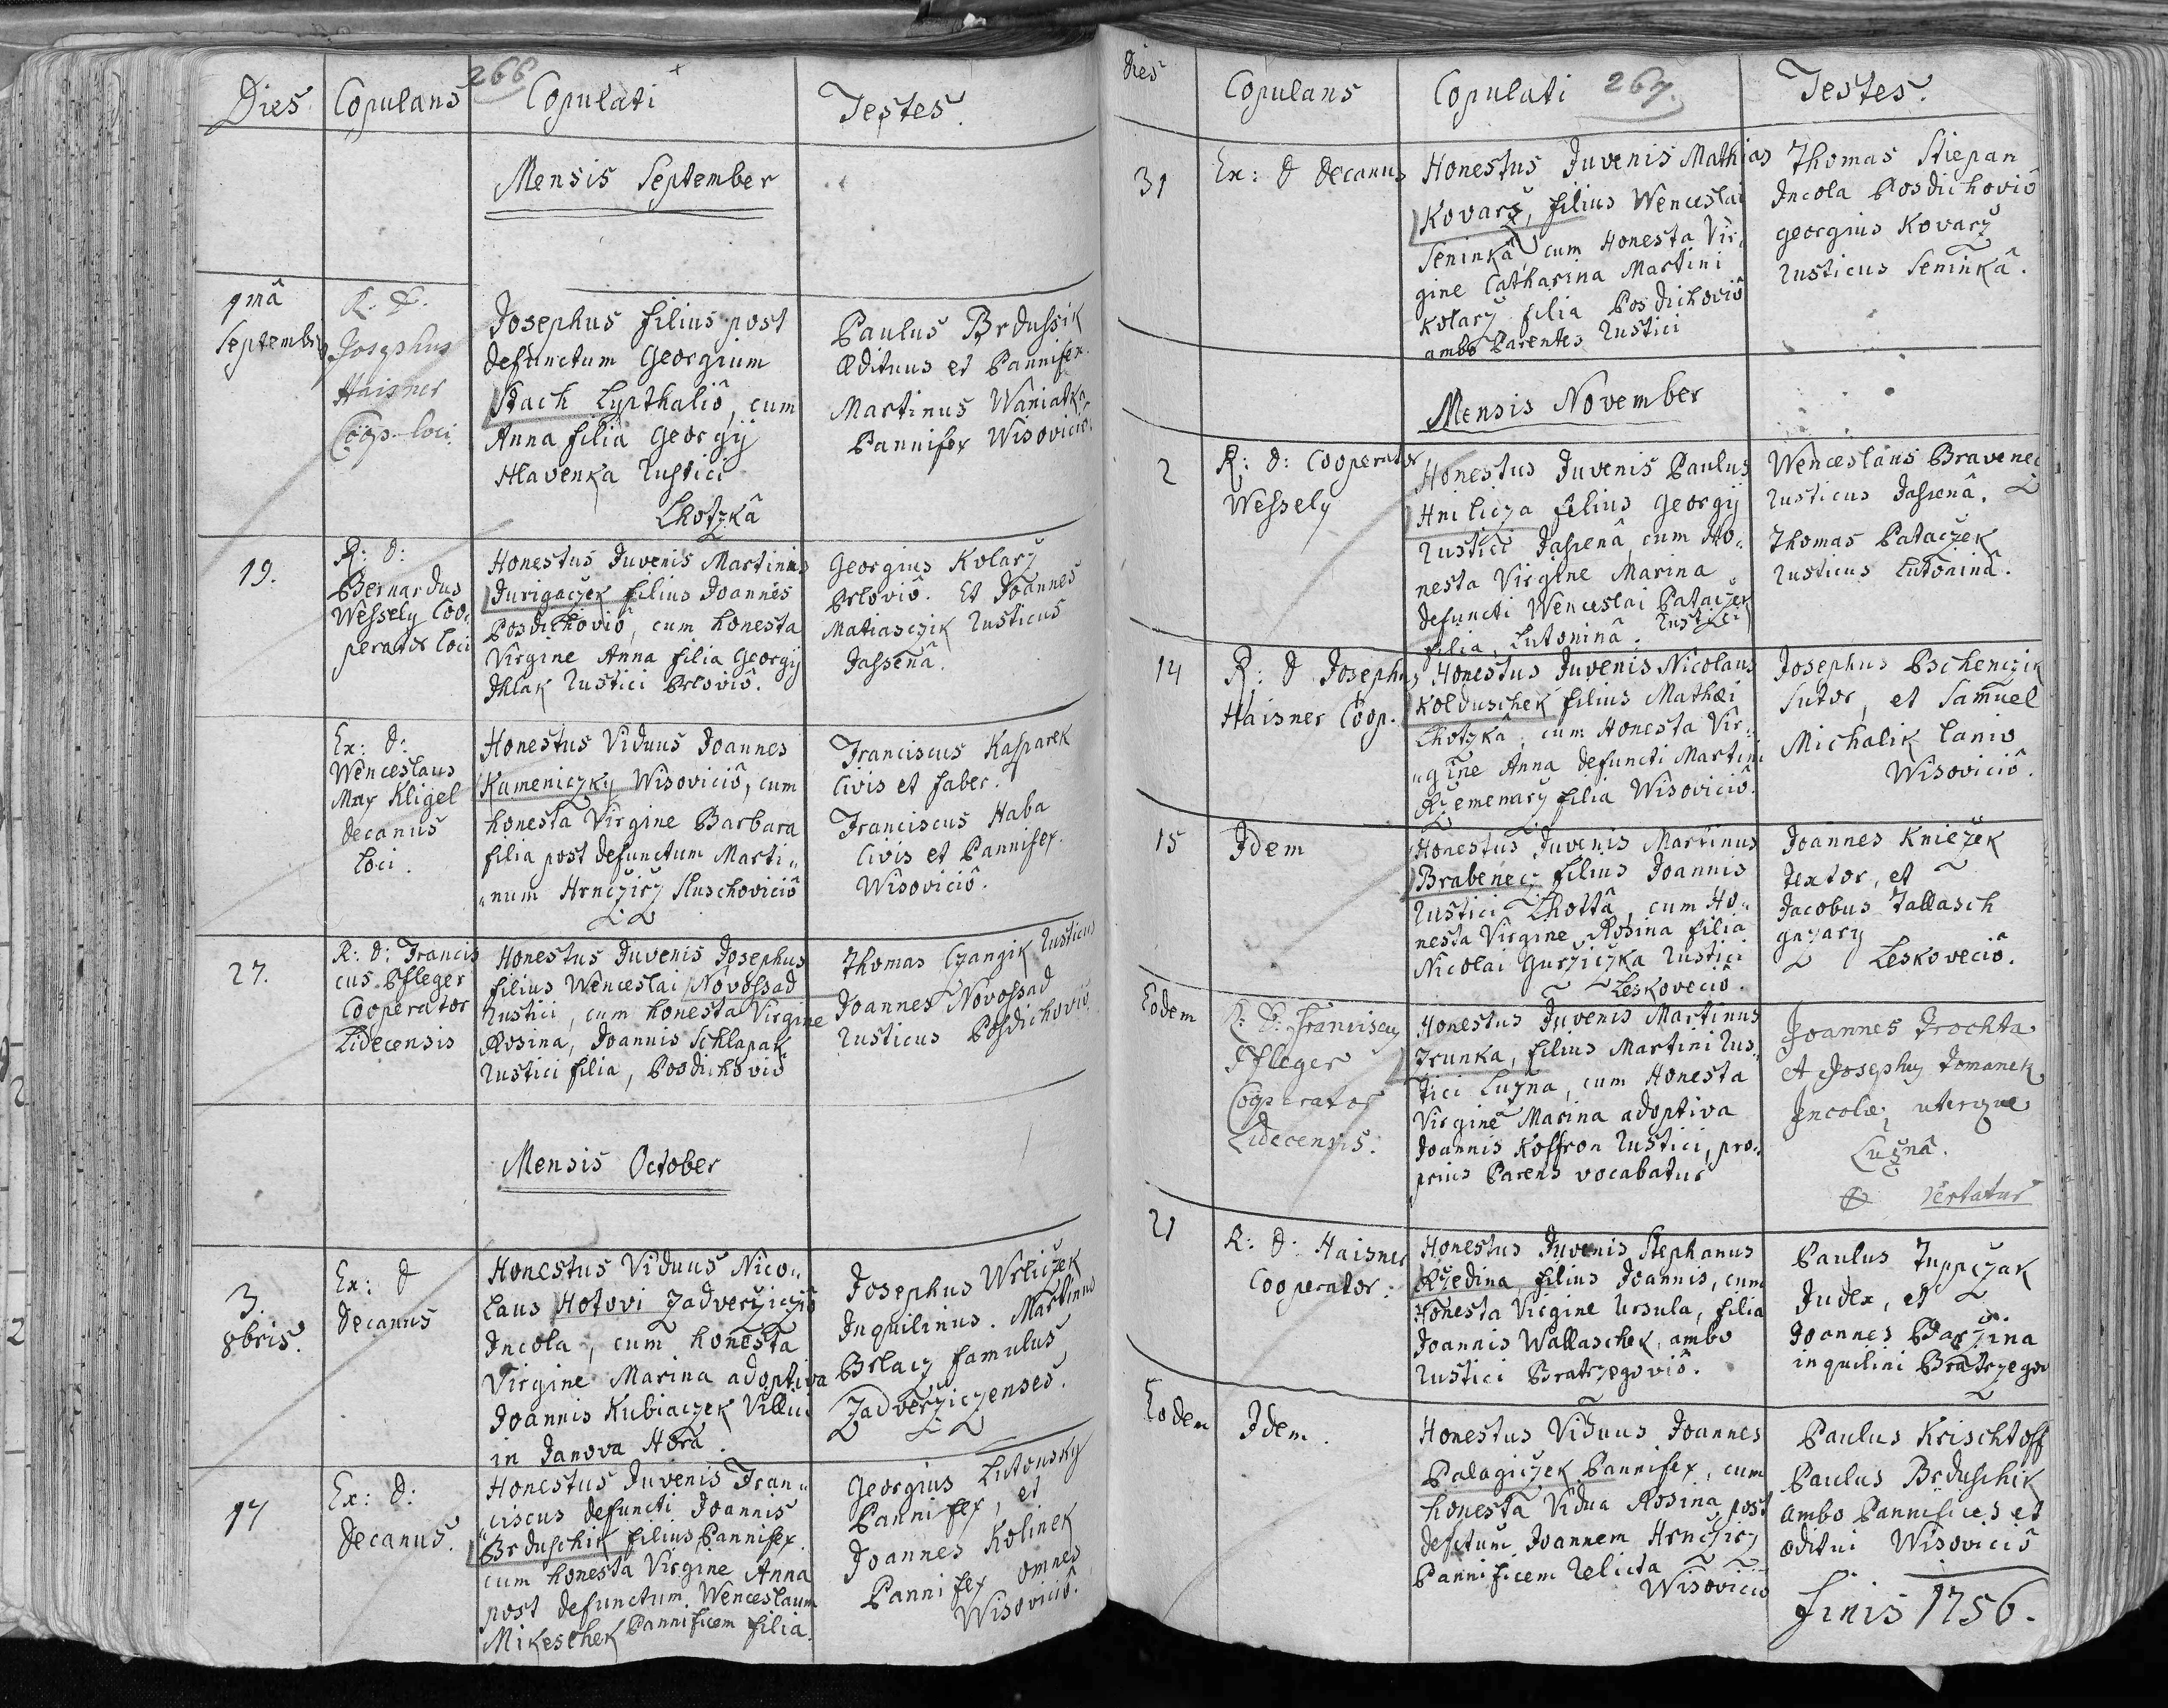 266
Dies Copulans Copulati Testes.
Mensis September
1mâ
Septembris
R: D.
Josephus
Haisner
Coop. loci.
Josephus filius post
defunctum Georgium
Stach Lypthaliô, cum
Anna filia Georgij
Hlavenka Rustici
Lhotzkâ
Paulus Brdussik
Ædituus et Pannifex.
Martinus Waniatka
Pannifex Wisoviciô.
19.
R: D:
Bernardus
Wessely Coo-
perator loci
Honestus Juvenis Martinus
Jurigaczek filius Joannes
Posdichoviô, cum honesta
Virgine Anna filia Georgij
Ihlak Rustici Prloviô.
Georgius Kolarz
Prloviô. Et Joannes
Matiasczik Rusticus
Jassenâ.
Ex: D:
Wenceslaus
Max Kligel
decanus
loci.
Honestus Viduus Joannes
Kameniczky Wisoviciô, cum
honesta Virgine Barbara
filia post defunctum Marti„
„num Hrnczirz Sluschoviciô
Franciscus Kasparek
Civis et faber.
Franciscus Haba
Civis et Pannifex.
Wisoviciô.
27.
R: D: Francis
cus Pfleger
Cooperator
Lidecensis
Honestus Juvenis Josephus
filius Wenceslai Novossad
Rustici, cum honesta Virgine
Rosina, Joannis Schlapak
Rustici filia, Posdichoviô
Thomas Czangik Rusticus
Joannes Novossad
Rusticus Posdichoviô.
Mensis October
3.
8bris.
Ex: D
Decanus
Honestus Viduus Nico„
laus Hotovi Zadverzicziô
Incola, cum honesta
Virgine Marina adoptiva
Joannis Kubiaczek Villici
in Janova Hora.
Josephus Wrliczek
Inquilinus. Martinus
Brlacz famulus
Zadverziczenses.
17
Ex: D:
Decanus.
Honestus Juvenis Fran„
„ciscus defuncti Joannis
Brduschik filius Pannifex.
cum honesta Virgine Anna
post defunctum Wenceslaum
Mikeschek Pannificem filia.
Georgius Lutonsky
Pannifex, et
Joannes Kolinek
Pannifex omnes
Wisoviciô.
267.
Dies Copulans Copulati Testes.
31
Ex: D Decanus
Honestus Juvenis Mathias
Kovarz, filius Wenceslai
Seninkâ, cum Honesta Vir„
gine Catharina Martini
Kolarz filia Posdichoviô
ambo Parentes Rustici
Thomas Stiepan
Incola Posdichoviô
georgius Kovarz
Rusticus Seninkâ.
Mensis November
2
R: D: Cooperator
Wessely
Honestus Juvenis Paulus
Hnilicza filius Georgij
Rustici Jassenâ, cum Ho„
nesta Virgine Marina
defuncti Wenceslai Pataczek
filia, Lutoninâ. Rustici
Wenceslaus Bravenec
Rusticus Jassenâ.
Thomas Pataczek
Rusticus Lutoninâ.
14
R: D Josephus
Haisner Coop.
Honestus Juvenis Nicolaus
Kolduschek filius Mathæi
Lhotzkâ, cum Honesta Vir„
„gine Anna defuncti Martini
Rzemenarz filia Wisoviciô.
Josephus Pschenczik
Sutor, et Samuel
Michalik Lanio
Wisoviciô.
15
Idem
Honestus Juvenis Martinus
Brabenecz filius Joannis
Rustici Lhottâ, cum Ho„
nesta Virgine Rosina filia
Nicolai Gurziczka Rustici
Leskoveciô.
Joannes Kniezek
textor, et
Jacobus Tallasch
Leskoveciô.
Eodem
R: D: Franciscus
Pfleger
Cooperator
Lidecensis.
Honestus Juvenis Martinus
Trunka, filius Martini Rus„
tici Luzna, cum Honesta
Virgine Marina adoptiva
Joannis Koffron Rustici, pro„
prius Parens vocabatur
Joannes Trochta
et Josephus Tomanek
Incolæ, uterque
Lužnâ.
vertatur
21
R: D: Haisner
Cooperator.
Honestus Juvenis Stephanus
Rzedina filius Joannis, cum
Honesta Virgine Ursula, filia
Joannis Wallaschek, ambo
Rustici Bratrzegoviô.
Paulus Zuppczak
Judex, et
Joannes Barzina
inquilini Bratrzegov
Eodem
Idem.
Honestus Viduus Joannes
Palagiczek Pannifex, cum
honesta Vidua Rosina post
defctum Joannem Hrnczirz
Pannificem Relicta
Wisoviciô
Paulus Krischtoff
Paulus Brduschik
ambo Pannifices et
æditui Wisoviciô
Finis 1756.